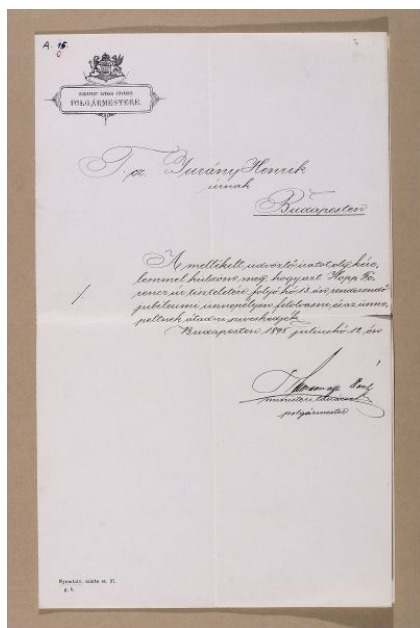 A. 15.
BUDAPEST SZÉKES FŐVÁROS
POLGÁRMESTERE.
T. cz. Jurány Henrik
úrnak
Budapesten
A mellékelt üdvözlő iratot oly kére-
lemmel küldöm meg, hogy azt Hopp Fe-
rencz úr tiszteletére folyó hó 13-án rendezendő
jubileumi ünnepélyen felolvasni, és az ünne-
peltnek átadni sziveskedjék.
Budapesten 1895 julius hó 12-én
polgármester
Nyomtatv. minta sz. 37.